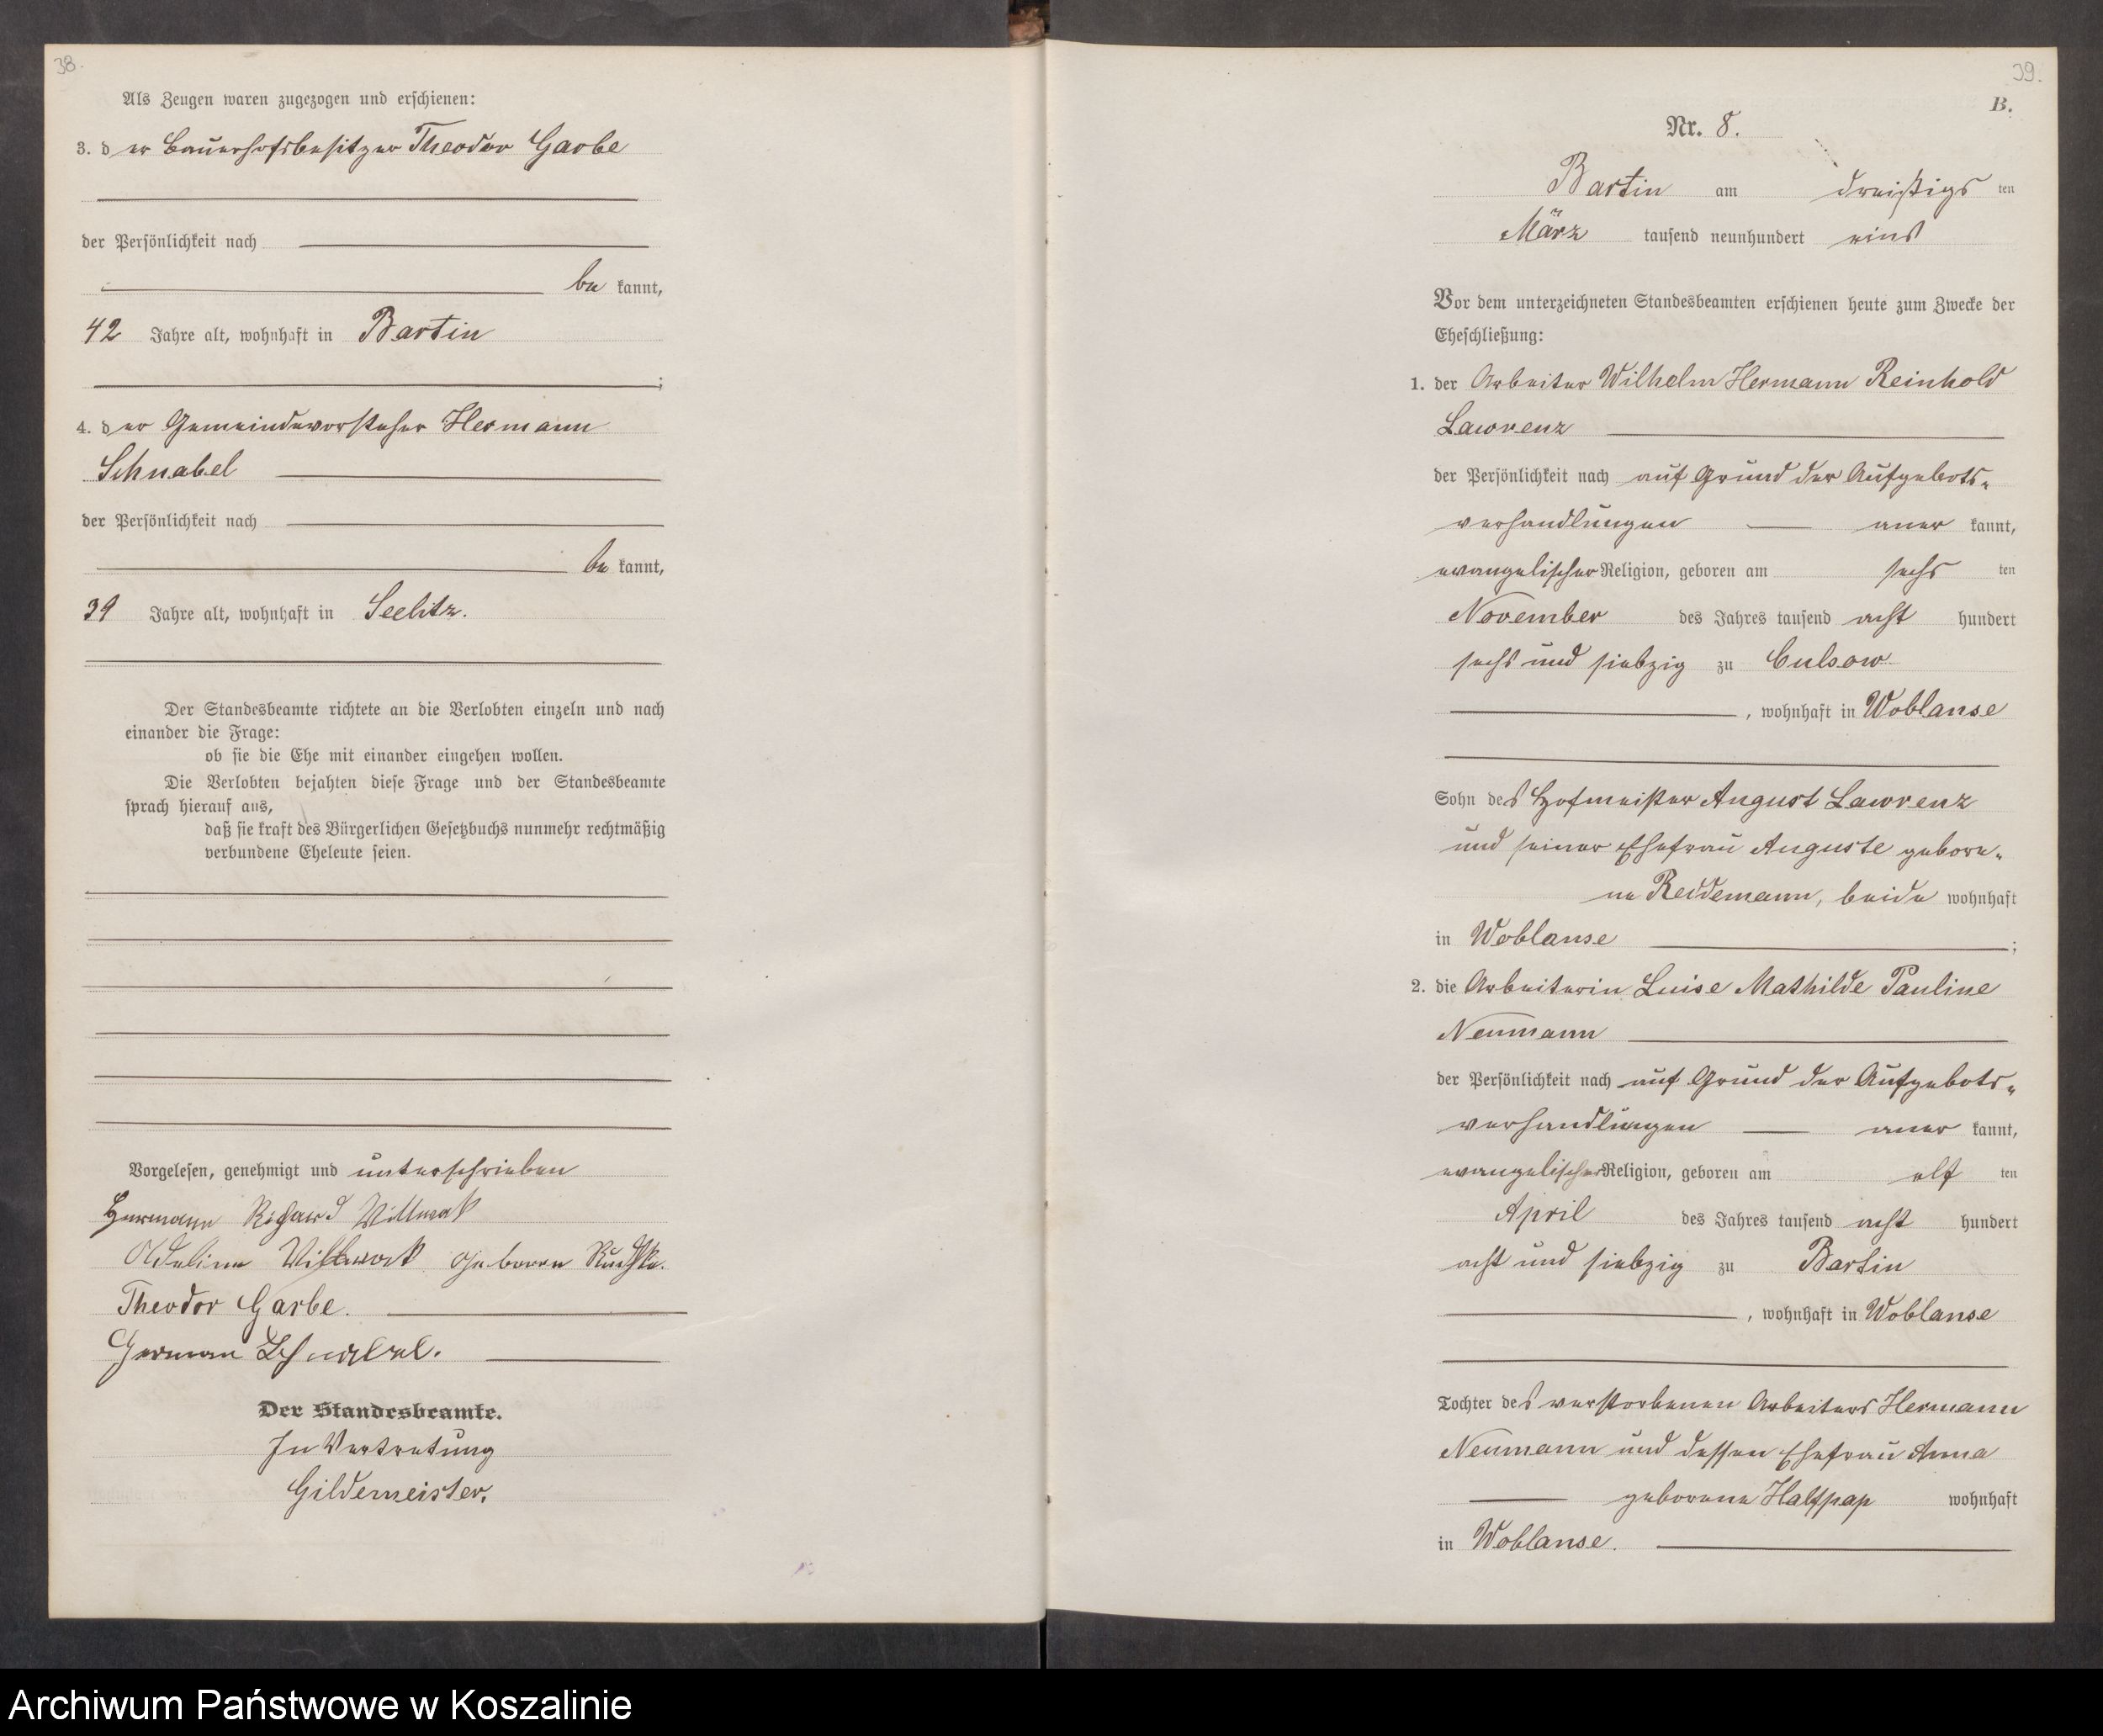 38.
Als Zeugen waren zugezogen und erschienen:
3. der Bauerhofsbesitzer Theodor Garbe
der Persönlichkeit nach
be kannt,
42 Jahre alt, wohnhaft in Bartin
;
4. der Gemeindevorsteher Hermann
Schnabel
der Persönlichkeit nach
be kannt,
39 Jahre alt, wohnhaft in Seelitz.
Der Standesbeamte richtete an die Verlobten einzeln und nach
einander die Frage:
ob sie die Ehe mit einander eingehen wollen.
Die Verlobten bejahten diese Frage und der Standesbeamte
sprach hierauf aus,
daß sie kraft des Bürgerlichen Gesetzbuchs nunmehr rechtmäßig
verbundene Eheleute seien.
Vorgelesen, genehmigt und unterschrieben
Hermann Richard Villwock
Adeline Villwock geboren
Theodor Garbe.
Herman Schnabel.
Der Standesbeamte.
In Vertretung
Gildemeister.
39.
B.
Nr. 8.
Bartin am dreißigs ten
März tausend neunhundert eins
Vor dem unterzeichneten Standesbeamten erschienen heute zum Zwecke der
Eheschließung:
1. der Arbeiter Wilhelm Hermann Reinhold
Lawrenz
der Persönlichkeit nach auf Grund der Aufgebots-
verhandlungen — aner kannt,
evangelischer Religion, geboren am sechs ten
November des Jahres tausend acht hundert
sechs und siebzig zu Culsow
, wohnhaft in Woblanse
Sohn des Hofmeister August Lawrenz
und seiner Ehefrau Auguste gebore-
ne Reddemann, beide wohnhaft
in Woblanse ;
2. die Arbeiterin Luise Mathilde Pauline
Neumann
der Persönlichkeit nach auf Grund der Aufgebots-
verhandlungen — aner kannt,
evangelischer Religion, geboren am elf ten
April des Jahres tausend acht hundert
acht und siebzig zu Bartin
, wohnhaft in Woblanse
Tochter des verstorbenen Arbeiters Hermann
Neumann und dessen Ehefrau Anna
geborene Halfpap wohnhaft
in Woblanse.
Archiwum Państwowe w Koszalinie